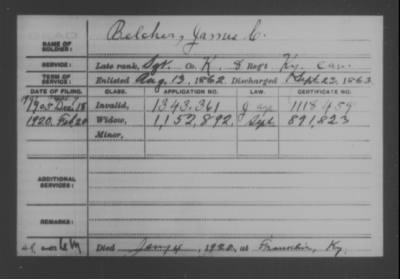 Belcher, James C.
NAME OF SOLDIER:
SERVICE: Late rank, Sgt. Co. K, 8 Regt. Ky. Cav.
TERM OF SERVICE: Enlisted Aug. 13, 1862 Discharged Sept. 23, 1863
DATE OF FILING. CLASS. APPLICATION NO. LAW. CERTIFICATE NO.
1905 Dec. 18 Invalid, 1343,361
1920. Feb 20 Widow, 1,152,892 891,823
Minor,
ADDITIONAL SERVICES:
REMARKS:
Died 1920, at Franklin, Ky.